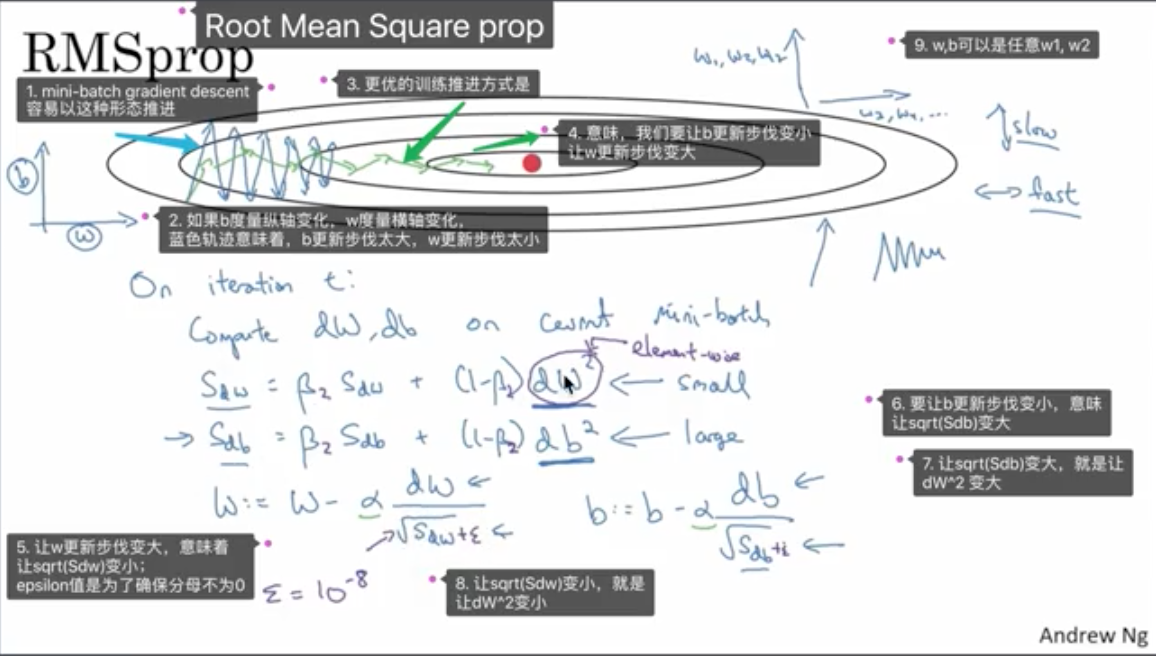 Root Mean Square prop
RMSprop
1. mini-batch gradient descent
容易以这种形态推进
3. 更优的训练推进方式是
w₁, w₂, w₂
9. w,b可以是任意w1, w2
w₃, w₄, ...
4. 意味，我们要让b更新步伐变小
让w更新步伐变大
slow
fast
b
w
2. 如果b度量纵轴变化，w度量横轴变化，
蓝色轨迹意味着，b更新步伐太大，w更新步伐太小
On iteration t:
Compute dW, db on current mini-batch
element-wise
S_dw = β₂ S_dw + (1-β₂) dW² ← small
→ S_db = β₂ S_db + (1-β₂) db² ← large
6. 要让b更新步伐变小，意味
让sqrt(Sdb)变大
7. 让sqrt(Sdb)变大，就是让
dW^2 变大
W := W - α dW / √S_dw + ε ←
b := b - α db / √S_db + ε ←
5. 让w更新步伐变大，意味着
让sqrt(Sdw)变小；
epsilon值是为了确保分母不为0
ε = 10⁻⁸
8. 让sqrt(Sdw)变小，就是
让dW^2变小
Andrew Ng